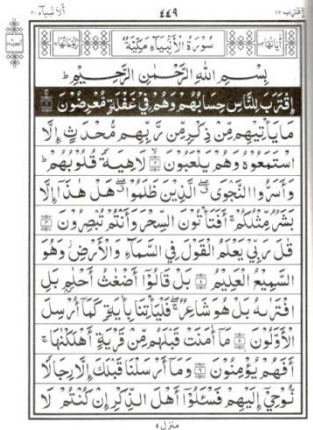 اقترب ١٧ ٤٤٩ الانبياء ٢١
سُوْرَةُ الْأَنْبِيَآءِ مَكِّيَّةٌ
بِسْمِ اللهِ الرَّحْمٰنِ الرَّحِيْمِ
اِقْتَرَبَ لِلنَّاسِ حِسَابُهُمْ وَهُمْ فِيْ غَفْلَةٍ مُّعْرِضُوْنَ
مَا يَاْتِيْهِمْ مِّنْ ذِكْرٍ مِّنْ رَّبِّهِمْ مُّحْدَثٍ اِلَّا
اسْتَمَعُوْهُ وَهُمْ يَلْعَبُوْنَ لَاهِيَةً قُلُوْبُهُمْ ط
وَاَسَرُّوا النَّجْوَى الَّذِيْنَ ظَلَمُوْا هَلْ هٰذَآ اِلَّا
بَشَرٌ مِّثْلُكُمْ اَفَتَاْتُوْنَ السِّحْرَ وَاَنْتُمْ تُبْصِرُوْنَ
قٰلَ رَبِّيْ يَعْلَمُ الْقَوْلَ فِي السَّمَآءِ وَالْاَرْضِ وَهُوَ
السَّمِيْعُ الْعَلِيْمُ بَلْ قَالُوْٓا اَضْغَاثُ اَحْلَامٍ بَلِ
افْتَرٰىهُ بَلْ هُوَ شَاعِرٌ فَلْيَاْتِنَا بِاٰيَةٍ كَمَآ اُرْسِلَ
الْاَوَّلُوْنَ مَآ اٰمَنَتْ قَبْلَهُمْ مِّنْ قَرْيَةٍ اَهْلَكْنٰهَا
اَفَهُمْ يُؤْمِنُوْنَ وَمَآ اَرْسَلْنَا قَبْلَكَ اِلَّا رِجَالًا
نُّوْحِيْٓ اِلَيْهِمْ فَسْـَٔلُوْٓا اَهْلَ الذِّكْرِ اِنْ كُنْتُمْ لَا
منزل ٤